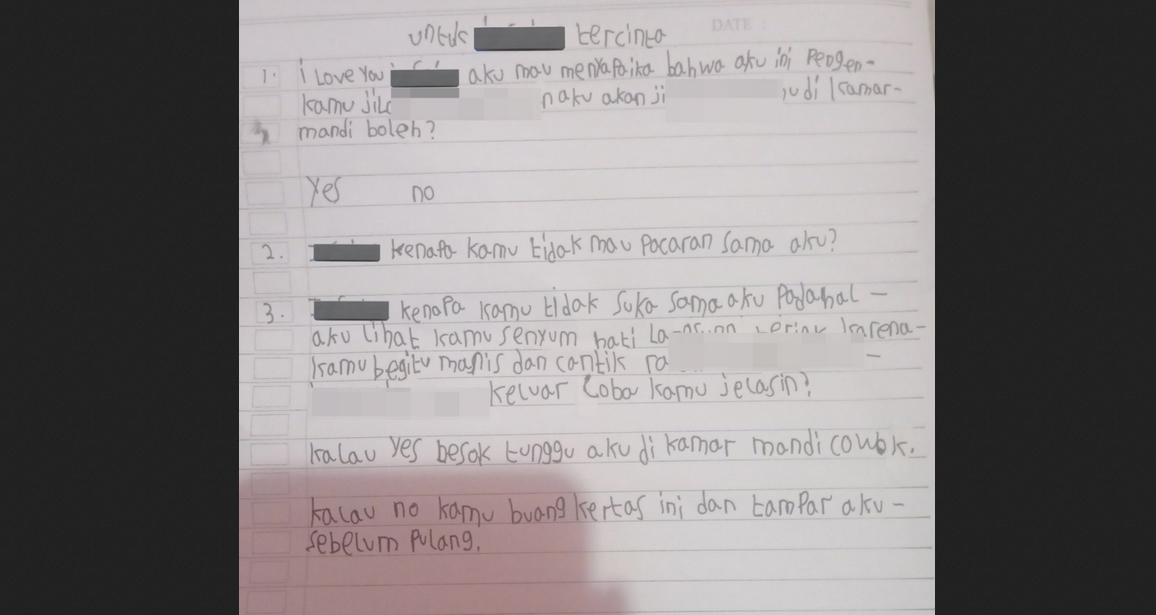 DATE :
untuk tercinta
1. i Love You aku mau menyapaika bahwa aku ini pengen-
kamu naku akan di kamar-
mandi boleh?
Yes no
2. kenapa kamu tidak mau pacaran sama aku?
3. kenapa kamu tidak suka sama aku Padahal -
aku lihat kamu senyum hati karena-
kamu begitu manis dan cantik -
keluar Coba kamu jelasin?
kalau Yes besok tunggu aku di kamar mandi cowok.
kalau no kamu buang kertas ini dan tampar aku -
sebelum Pulang.